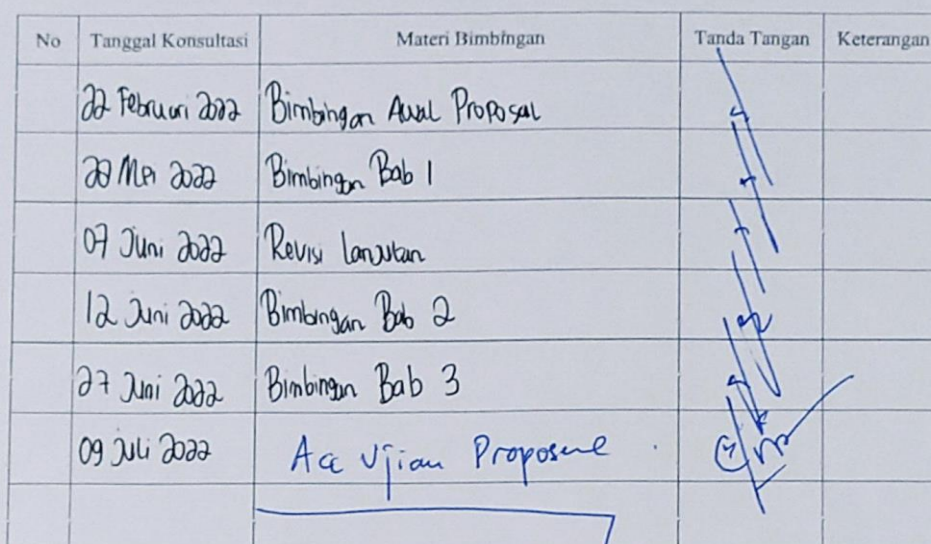 No Tanggal Konsultasi Materi Bimbingan Tanda Tangan Keterangan
22 Februari 2022 Bimbingan Awal Proposal
20 Mei 2022 Bimbingan Bab 1
07 Juni 2022 Revisi Lanjutan
12 Juni 2022 Bimbingan Bab 2
27 Juni 2022 Bimbingan Bab 3
09 Juli 2022 Acc Ujian Proposal